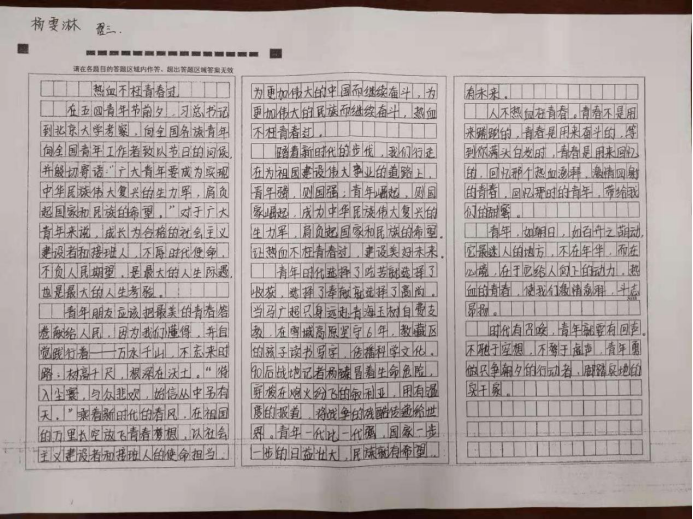 杨雯淋
请在各题目的答题区域内作答,超出答题区域答案无效
热血不枉青春过
在五四青年节前夕,习总书记
到北京大学考察,向全国各族青年
向全国青年工作者致以节日的问候,
并殷切寄语:“广大青年要成为实现
中华民族伟大复兴的生力军,肩负
起国家和民族的希望。”对于广大
青年来说,成长为合格的社会主义
建设者和接班人,不辱时代使命,
不负人民期望,是最大的人生际遇
也是最大的人生考验。
青年朋友应该把最美的青春答
卷献给人民,因为我们懂得,并自
觉践行着——万水千山,不忘来时
路;树高千尺,根深在沃土。“将
入尘寰,与众悲欢,始信丛中另有
天。”乘着新时代的春风,在祖国
的万里长空放飞青春梦想,以社会
主义建设者和接班人的使命担当,
为更加伟大的中国而继续奋斗,为
更加伟大的民族而继续奋斗,热血
不枉青春过。
踏着新时代的步伐,我们行走
在为祖国建设伟大事业的道路上,
青年强,则国强;青年崛起,则国
家崛起,成为中华民族伟大复兴的
生力军,肩负起国家和民族的希望,
让热血不枉青春过,建设美好未来。
青年时代选择了吃苦就选择了
收获,选择了奉献就选择了高尚。
当马广超只身远赴青海玉树自费支
教,在雪域高原坚守6年,教藏区
的孩子读书写字,传播科学文化。
90后战地记者杨臻冒着生命危险,
穿梭在烽火纷飞的叙利亚,用有温
度的报道,将战争的残酷传递给世
界。青年一代比一代强,国家一步
一步的日益壮大,民族就有希望,
有未来。
人不热血枉青春。青春不是用
来蹉跎的,青春是用来奋斗的,等
到你满头白发时,青春是用来回忆
的,回忆那个热血澎湃,激情回射
的青春,回忆那时的青年,带给我
们的甜蜜。
青年,如朝日,如百卉之萌动
它最迷人的地方,不在年华,而在
心境,在于它给人向上的动力,热
血的青春,使我们激情澎湃,斗志
昂扬。
时代有召唤,青年就要有回声。
不驰于空想,不骛于虚声,青年勇
做只争朝夕的行动者,脚踏实地的
实干家。